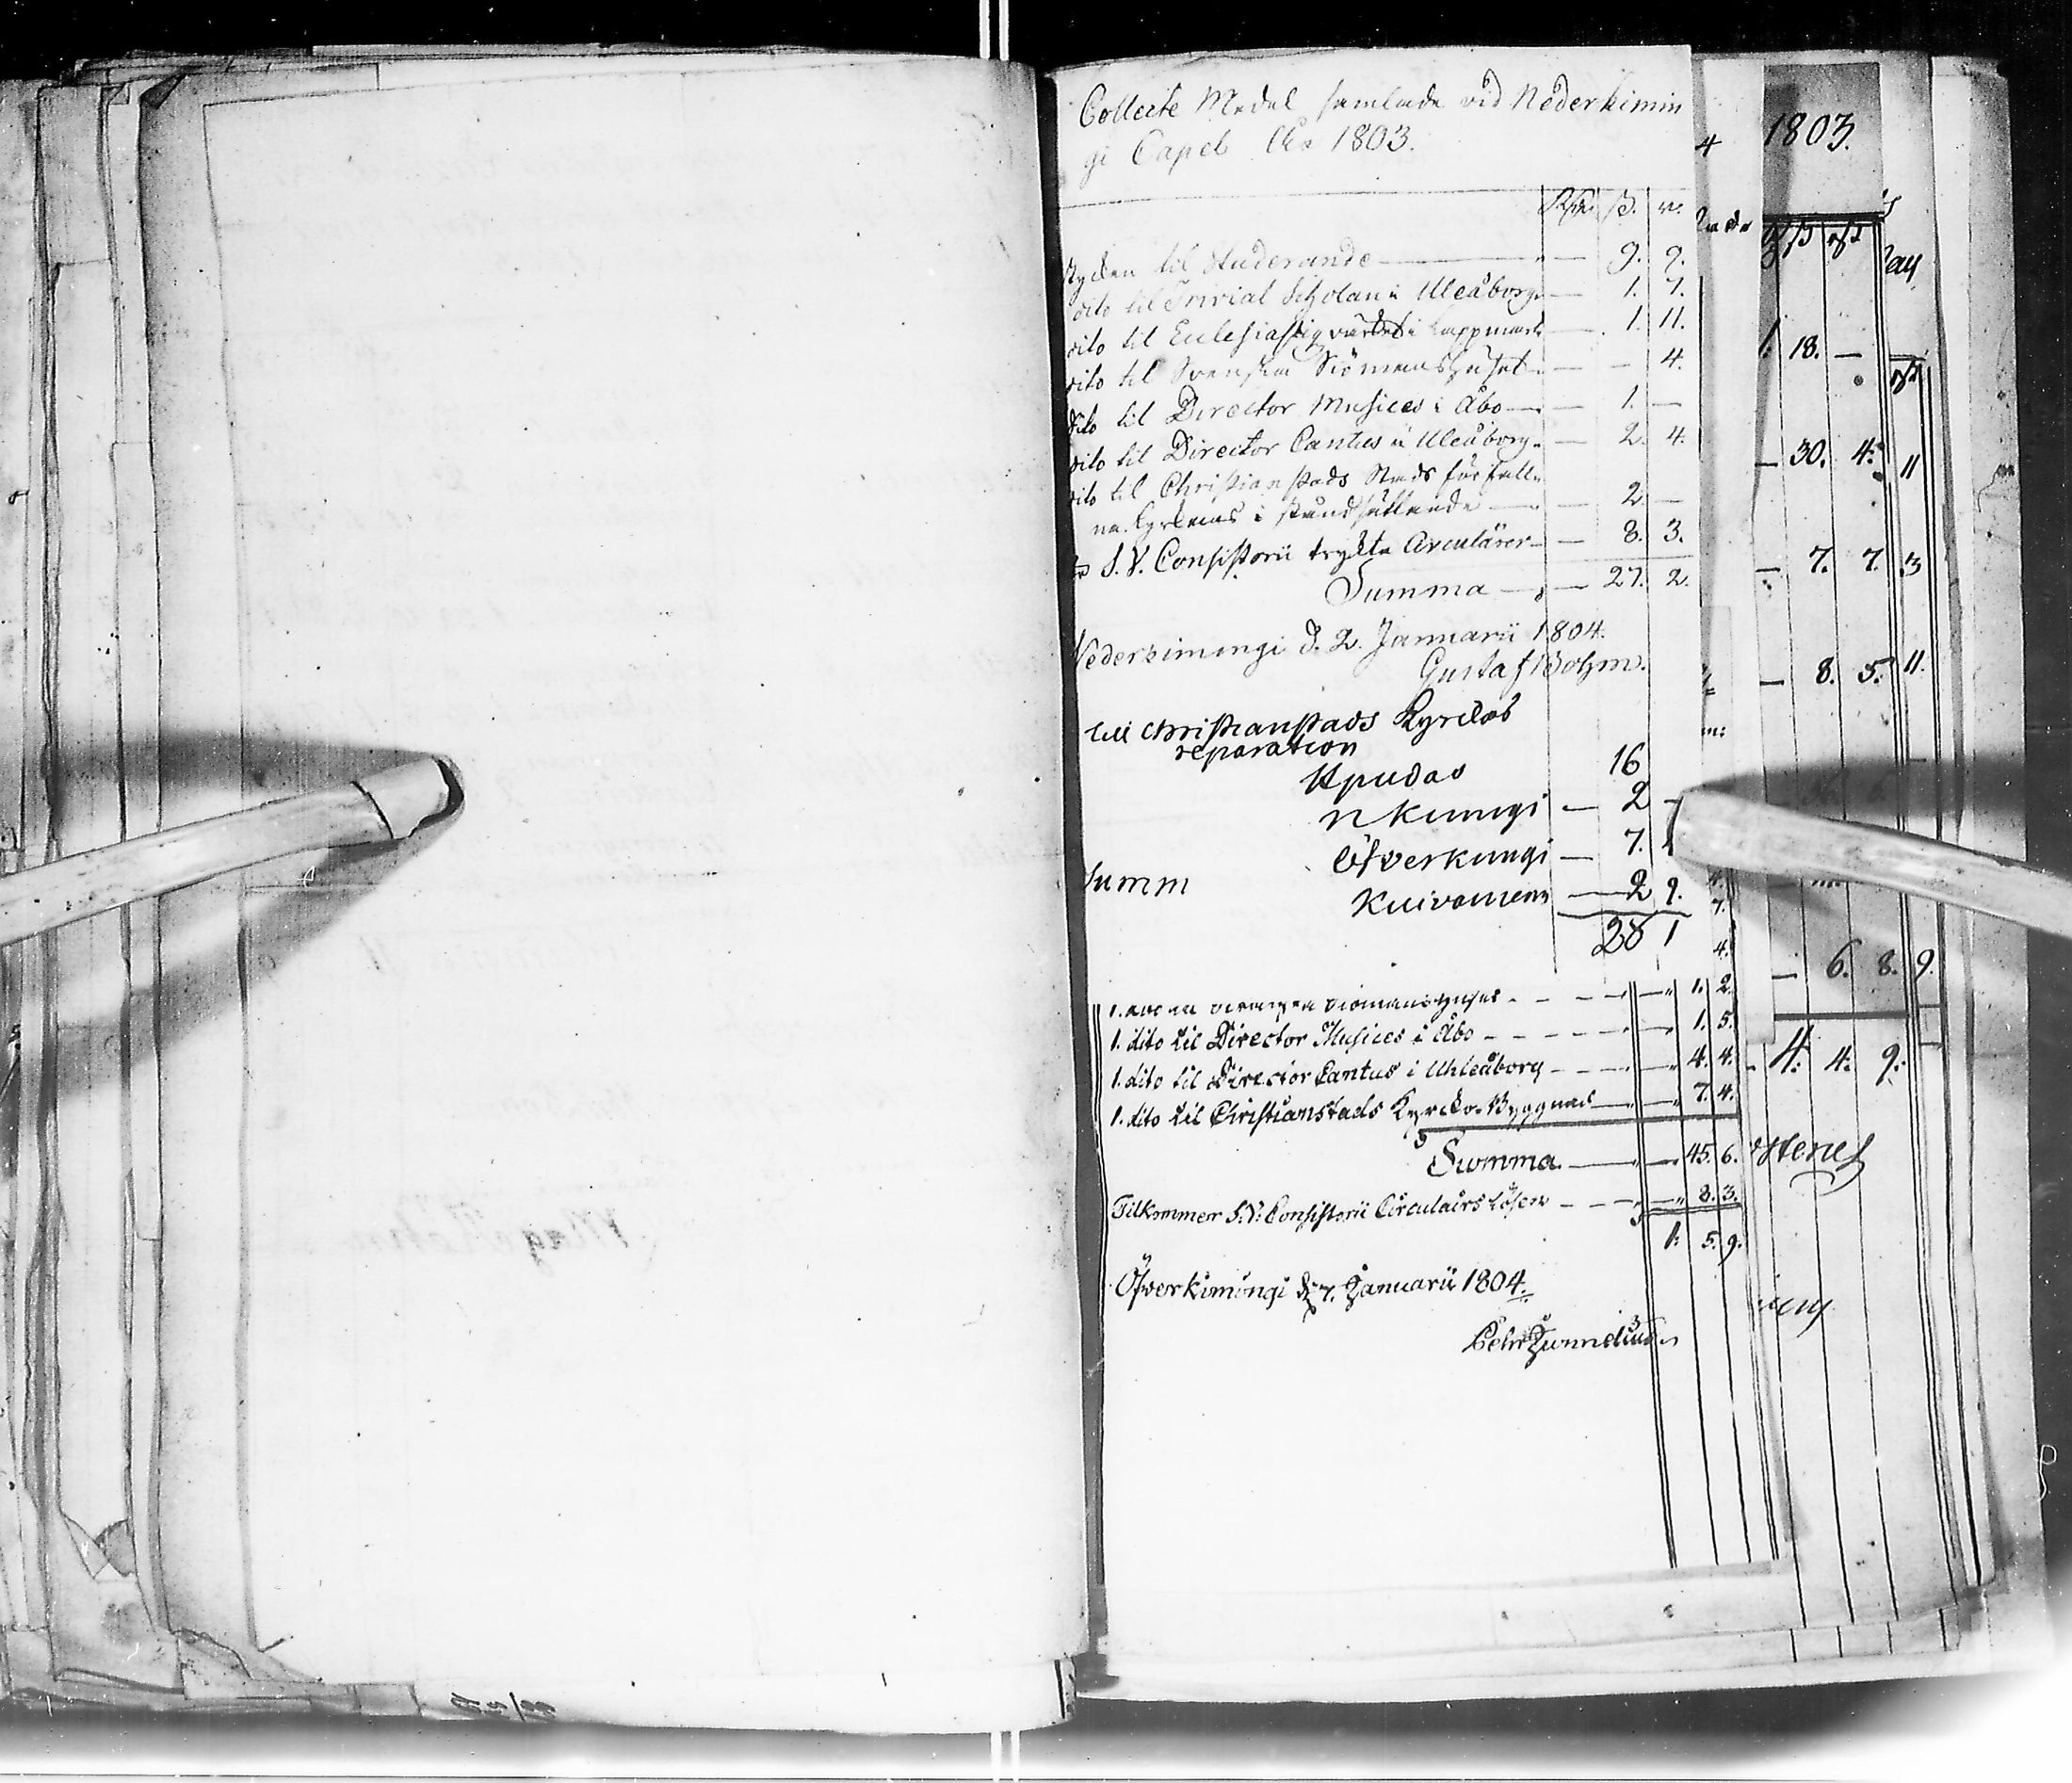 Collecte Medel samlade vid Nederkimin
gi Capel Åhr 1803.
Rdr. ß. r.
stycken til Studerande — 9. 9.
dito til Trivial Scholan i Uleåborg — 1. 7.
dito til Ecclesiastiqvärket i Lappmark — 1. 11.
dito til Svenska Siömanshuset — 4.
dito til Director Musices i Åbo — 1. —
dito til Director Cantus i Uleåborg — 2. 4.
dito til Christianstads Stads förfall
na Kyrkas i ståndsättande — 2. —
S. V. Consistorii tryckta Circulärer — 8. 3.
Summa — 27. 2.
Nederkimingi d. 2. Januarii 1804.
Gustaf Bohm.
till Christianstads Kyrckos
reparation
Hpudas 16
N kimingi — 2 —
Öfverkimgi — 7.
Summ Kuivaniemi — 2 9.
28 1
1. dito til Svenska Siömanshuset — 1. 2.
1. dito til Director Musices i Åbo — 1. 5.
1. dito til Director Cantus i Uhleåborg — 4. 4.
1. dito til Christianstads Kyrcko-Byggnad — 7. 4.
Summa — 45. 6.
Tilkommer S. V. Consistorii Circulairs Lösen — 8. 3.
1. 5. 9.
Öfverkimingi d. 7. Januarii 1804.
1803.
1. 18. —
— 30. 4. 11
— 7. 7. 3
— 8. 5. 11.
— 6. 8. 9.
4. 4. 9.